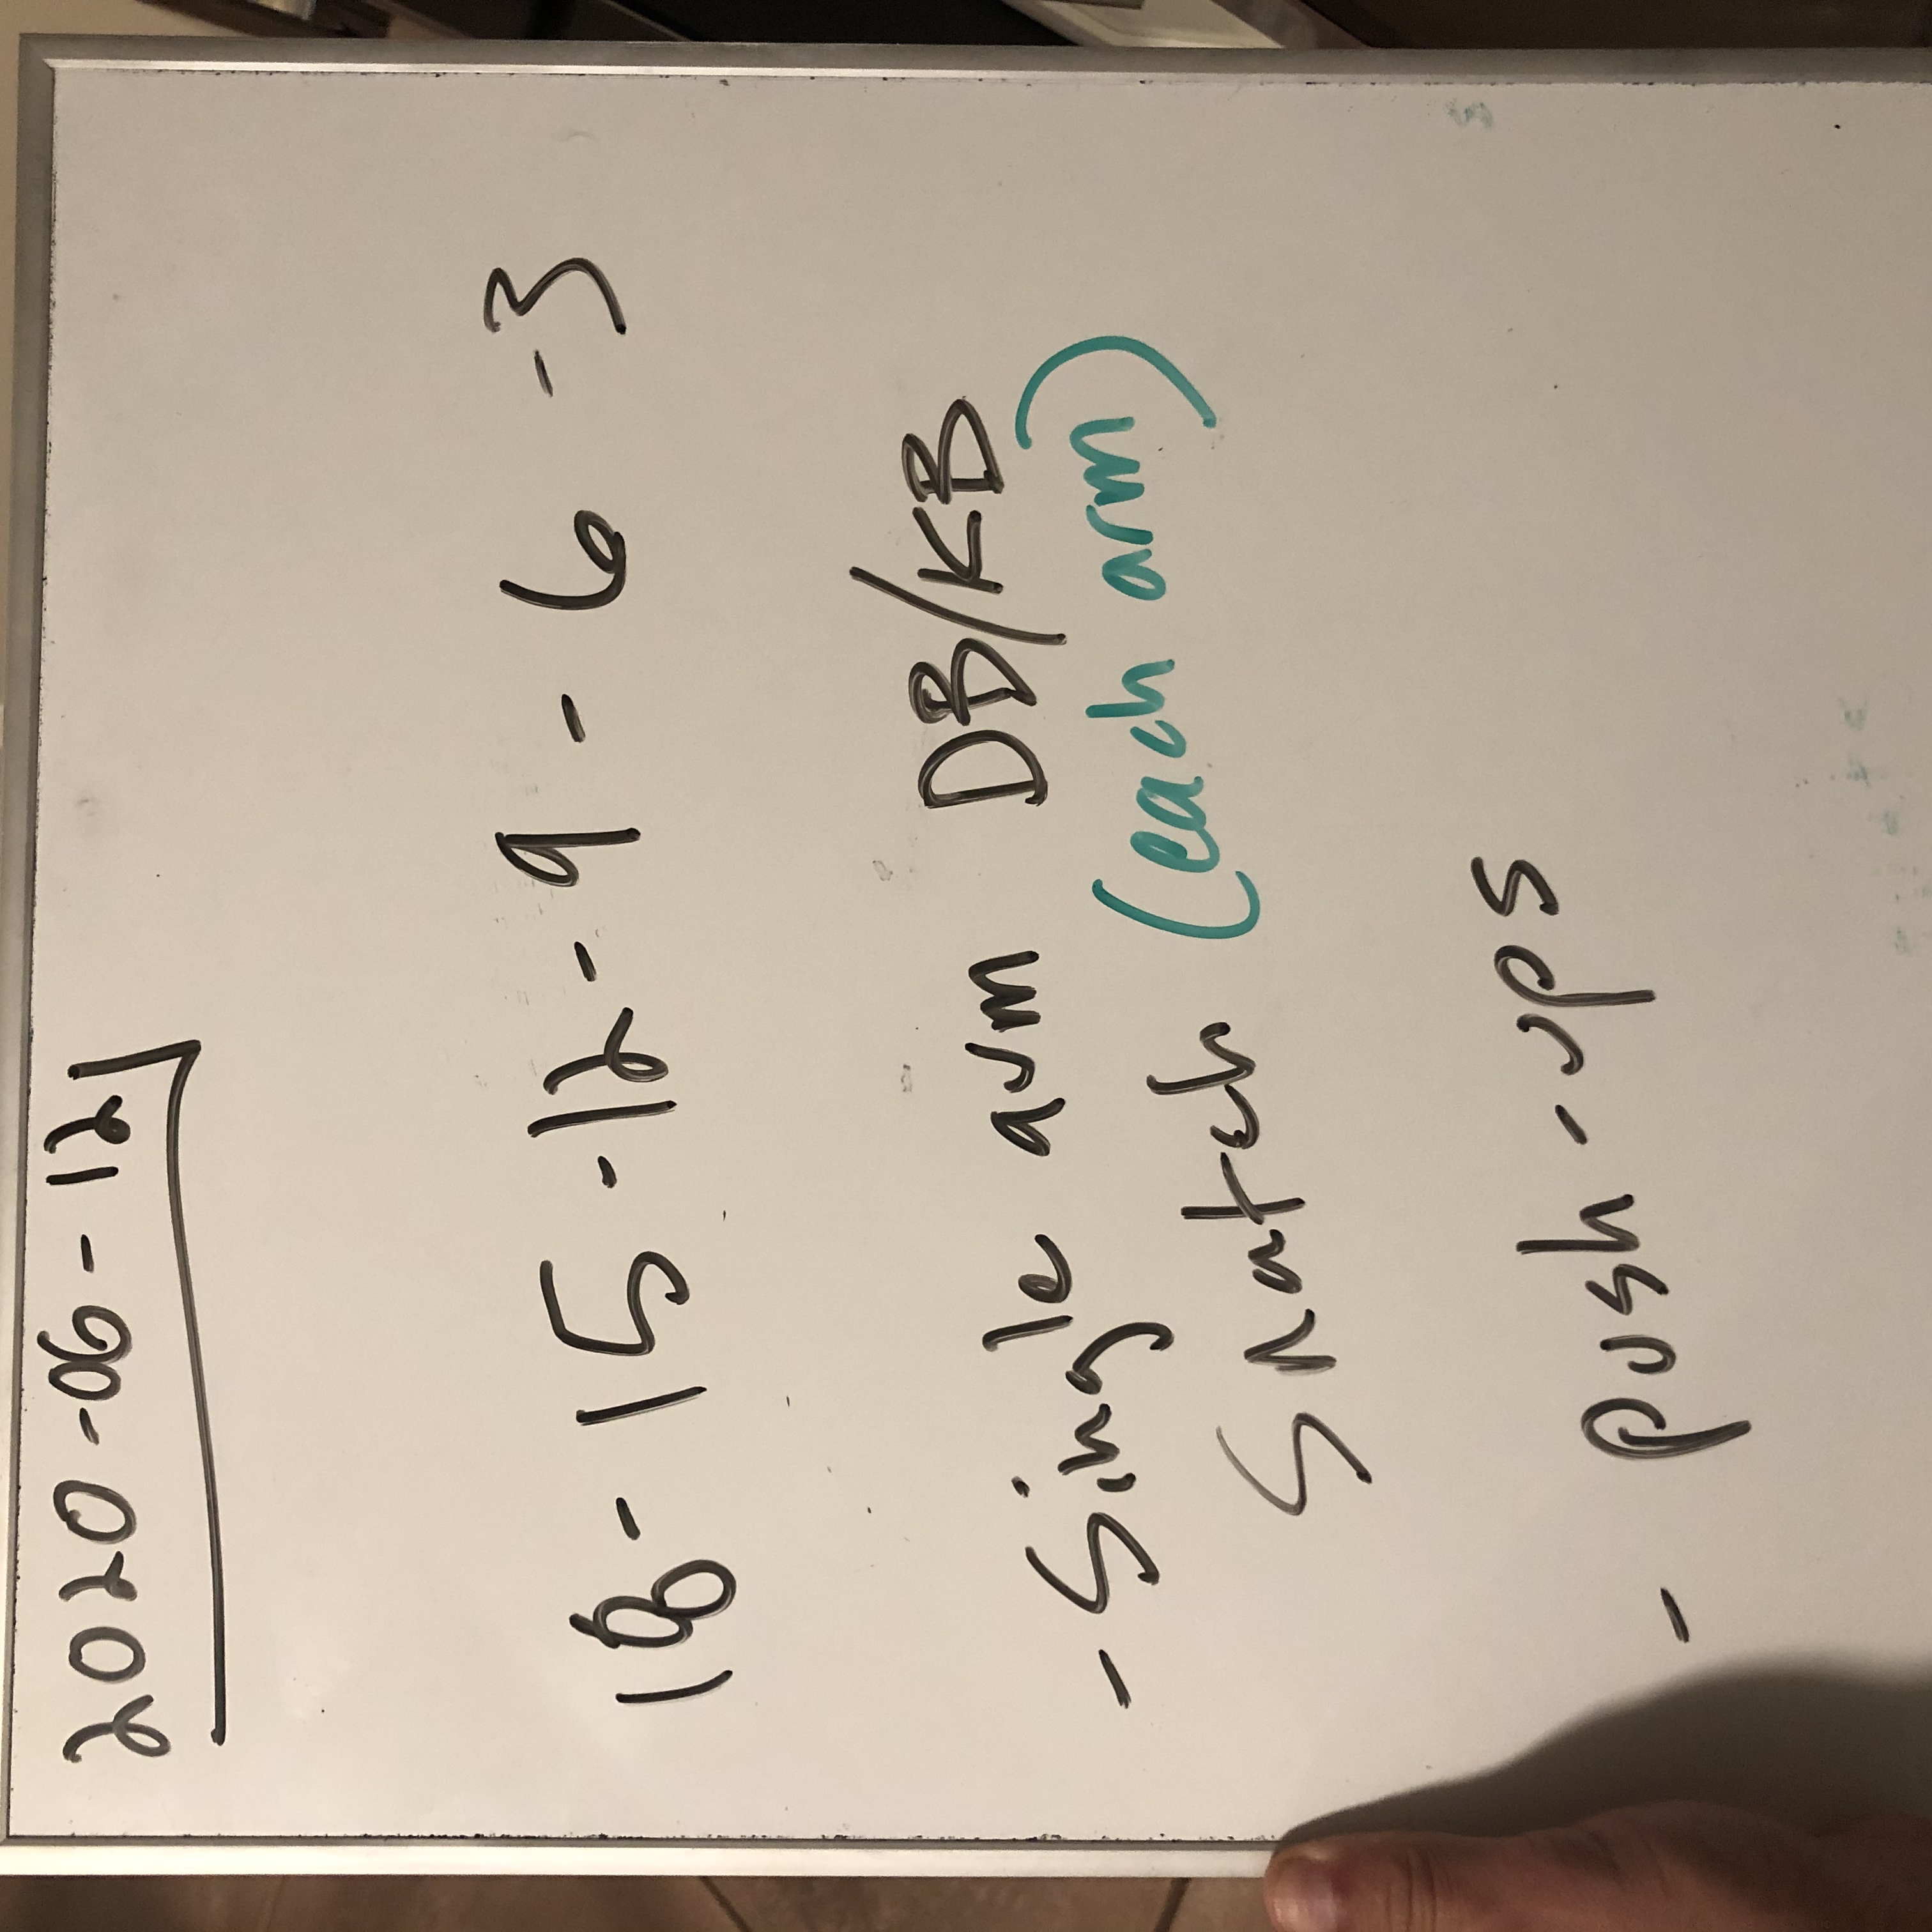 2020-06-12
18-15-12-9-6-3
-Single arm DB/KB
Snatch (each arm)
- push-ups